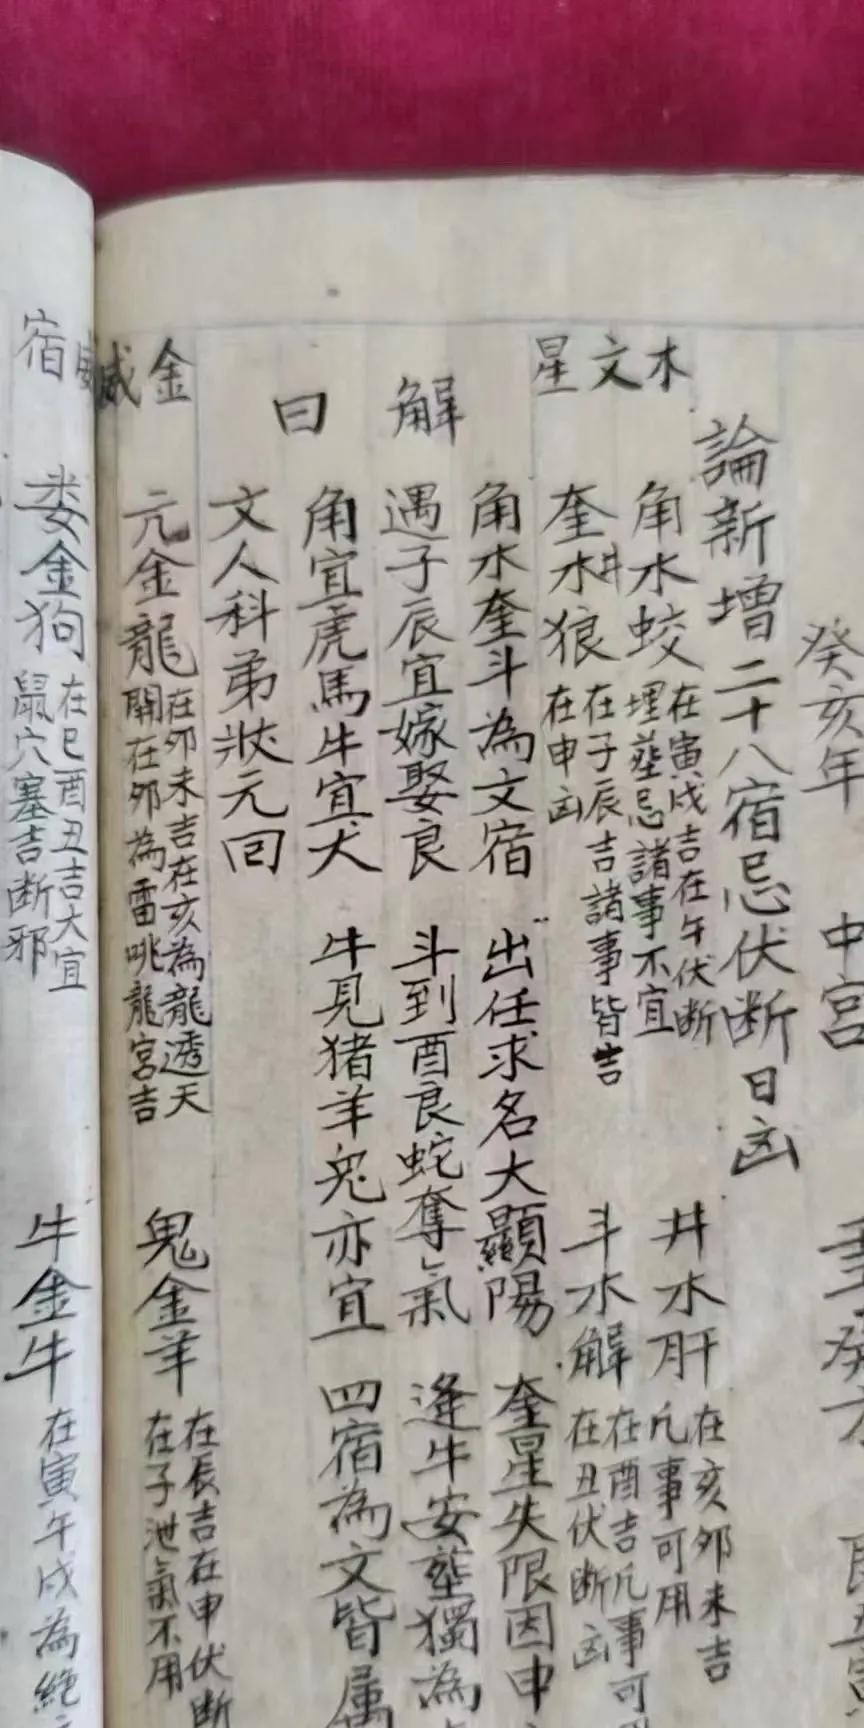 癸亥年 中宮
論新增二十八宿忌伏断日凶
木文星
角木蛟 在寅戌吉在午伏断 埋塟忌諸事不宜 井木犴 在亥卯未吉 凢事可用
奎木狼 在子辰吉諸事皆吉 在申凶 斗木獬 在酉吉凢事可 在丑伏断凶
角木奎斗為文宿 出任求名大顯陽 奎星失限因申
解曰
遇子辰宜嫁娶良 斗到酉良蛇奪氣 逢牛安塟獨為
角宜虎馬牛宜犬 牛見猪羊兔亦宜 四宿為文皆属
文人科弟狀元回
金威
亢金龍 在卯未吉在亥為龍透天 關在卯為雷咷龍宮吉 鬼金羊 在辰吉在申伏断 在子泄氣不用
宿
娄金狗 在巳酉丑吉大宜 鼠穴塞吉断邪 牛金牛 在寅午戌為絶